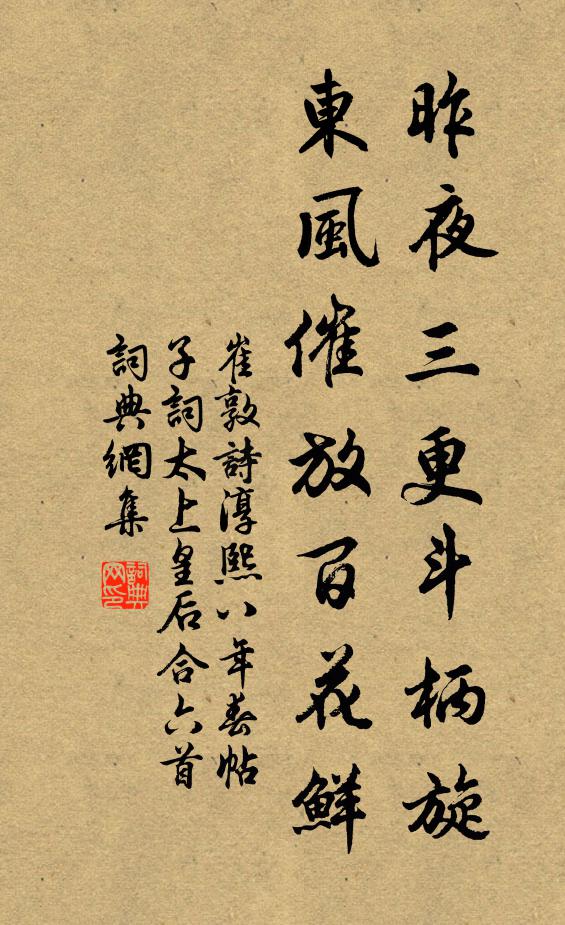 昨夜三更斗柄旋
東風催放百花鮮
崔敦詩淳熙八年春帖
子詞太上皇后合六首
詞典網集
詞典
网印